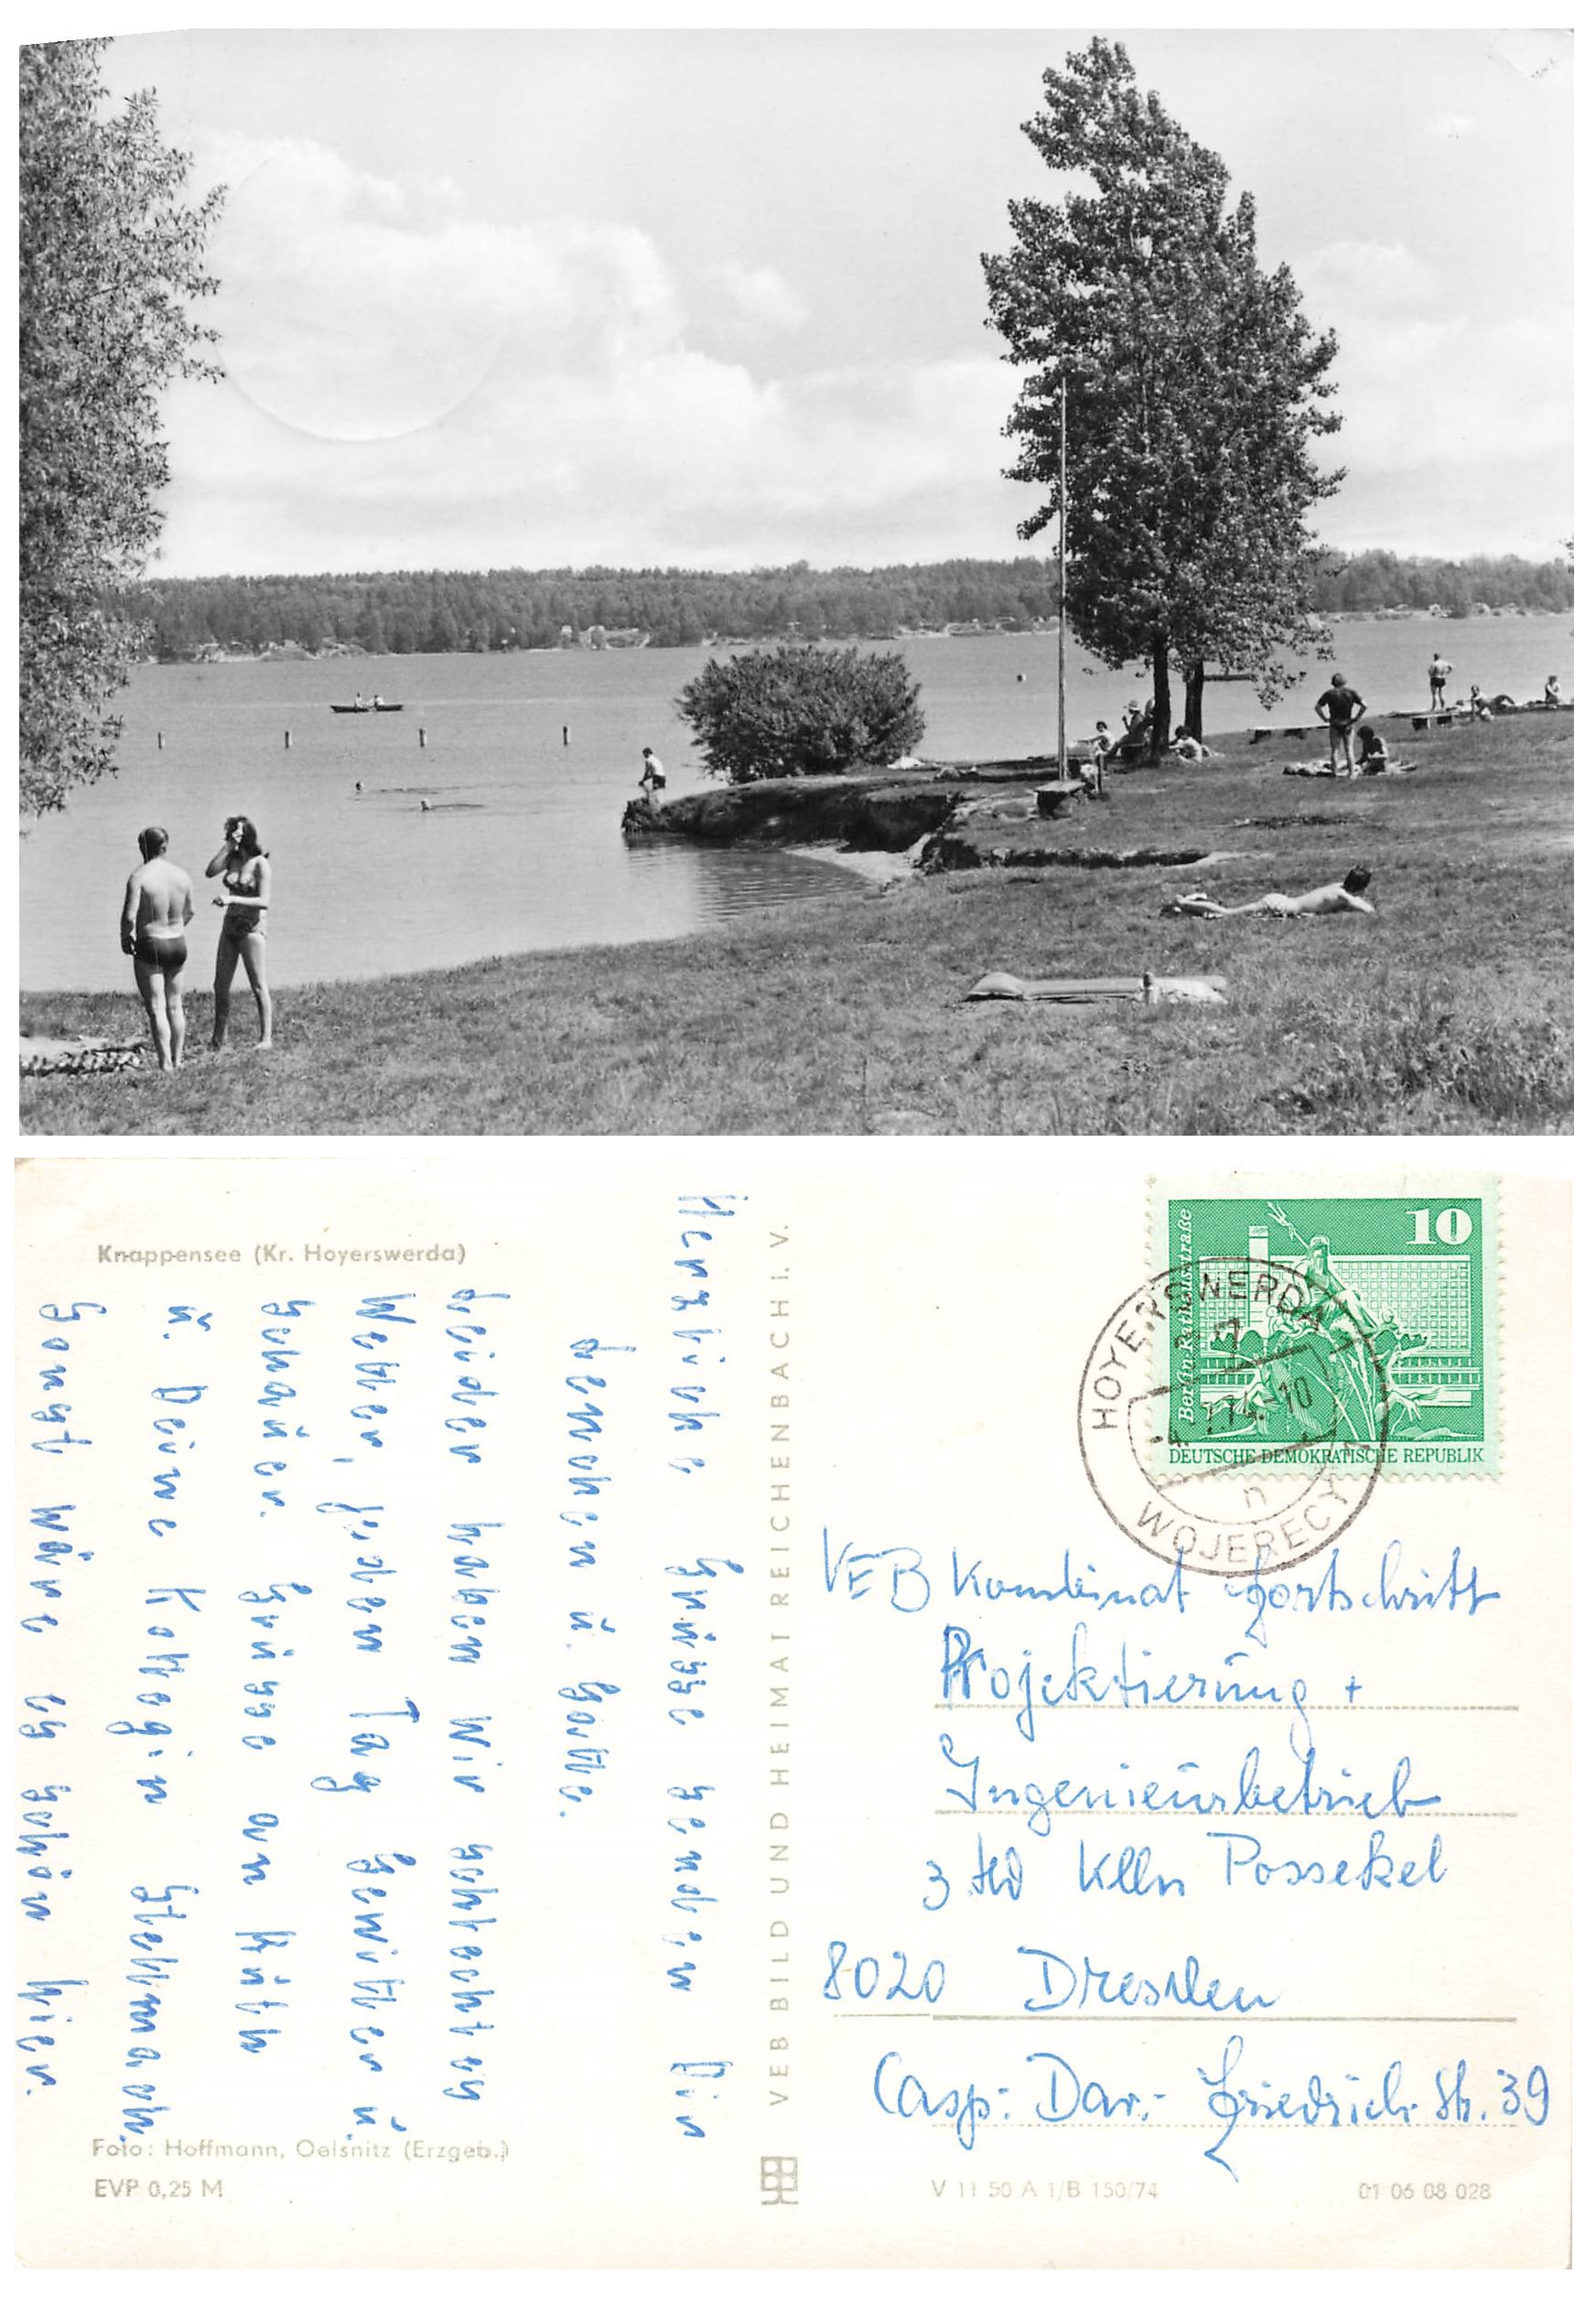 Knappensee (Kr. Hoyerswerda)
Herzliche Grüsse senden Dir
Lenchen u. Gotth.
Leider haben wir schlechtes
Wetter, jeden Tag Gewitter u.
Schauer. Grüsse an Ruth
u. Deine Kollegin Stellmach.
Sonst wäre es schön hier.
Foto: Hoffmann, Oelsnitz (Erzgeb.)
EVP 0,25 M
VEB BILD UND HEIMAT REICHENBACH i. V.
10
Berlin Rathausstraße
DEUTSCHE DEMOKRATISCHE REPUBLIK
HOYERSWERDA
10
n
WOJERECY
VEB Kombinat Fortschritt
Projektierung +
Ingenieurbetrieb
Klln Possekel
8020 Dresden
Casp.- Dav.- Friedrich Str. 39
V 11 50 A 1/B 150/74
01 06 08 028